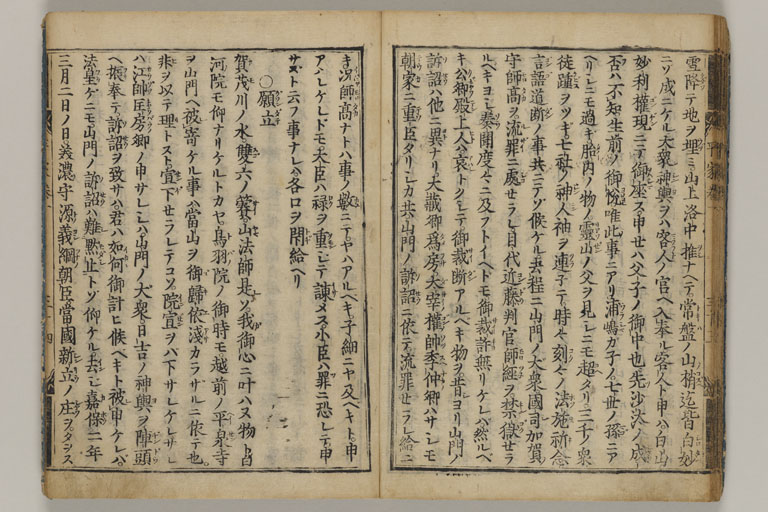 雪降テ地ヲ埋ミ山上洛中推ナヘテ常盤ノ山ノ梢迄皆白妙
ニソ成ニケル大衆神輿ヲハ客人ノ宮ヘ入奉ル客人ト申ハ白山
妙利権現ニテ御座ス申セハ父子ノ御中也先沙汰ノ成
否ハ不知生前ノ御悦唯此事ニアリ浦嶋カ子ノ七世ノ孫ニア
ヘリシニモ過キ胎内ノ物ノ霊山ノ父ヲ見シニモ超タリ三千ノ衆
徒踵ヲツキ七社ノ神人袖ヲ連テ時々刻々ノ法施祈念
言語道断ノ事共ニテソ候ケル去程ニ山門ノ大衆國司加賀
守師高ヲ流罪ニ處セラレ目代近藤判官師経ヲ禁獄セラ
ルヘキヨシ奏聞度々ニ及フトイヘトモ御裁許無リケレハ然ルヘ
キ公卿殿上人ハ哀トクシテ御裁断アルヘキ物ヲ昔ヨリ山門ノ
訴詔ハ他ニ異ナリ大蔵卿為房大宰権帥季仲卿ハサシモ
朝家ニ重臣タリシカ共山門ノ訴詔ニ依テ流罪セラレ給ニ
キ況師高ナトハ事ノ數ニテヤハアルヘキ子細ニヤ及ヘキト申
アハレケレドモ大臣ハ禄ヲ重シテ諫メス小臣ハ罪ニ恐レテ申
サスト云フ事ナレハ各口ヲ閉給ヘリ
〇願立
賀茂川ノ水雙六ノ賽山法師是ソ我御心ニ叶ハヌ物ト白
河院モ仰ナリケルトカヤ鳥羽院ノ御時モ越前ノ平泉寺
ヲ山門ヘ被寄ケル事ハ當山ヲ御歸依淺カラサルニ依テ也
非ヲ以テ理トスト宣下セラレテコソ院宣ヲハ下サレケレサレ
ハ江帥匡房卿ノ申サレシハ山門ノ大衆日吉ノ神輿ヲ陣頭
ヘ振奉テ訴詔ヲ致サハ君ハ如何御計ヒ候ヘキト被申ケレハ
法皇ケニモ山門ノ訴詔ハ難黙止トソ仰ケル去シ嘉保二年
三月二日ノ日美濃守源義綱朝臣當國新立ノ庄ヲタヲス